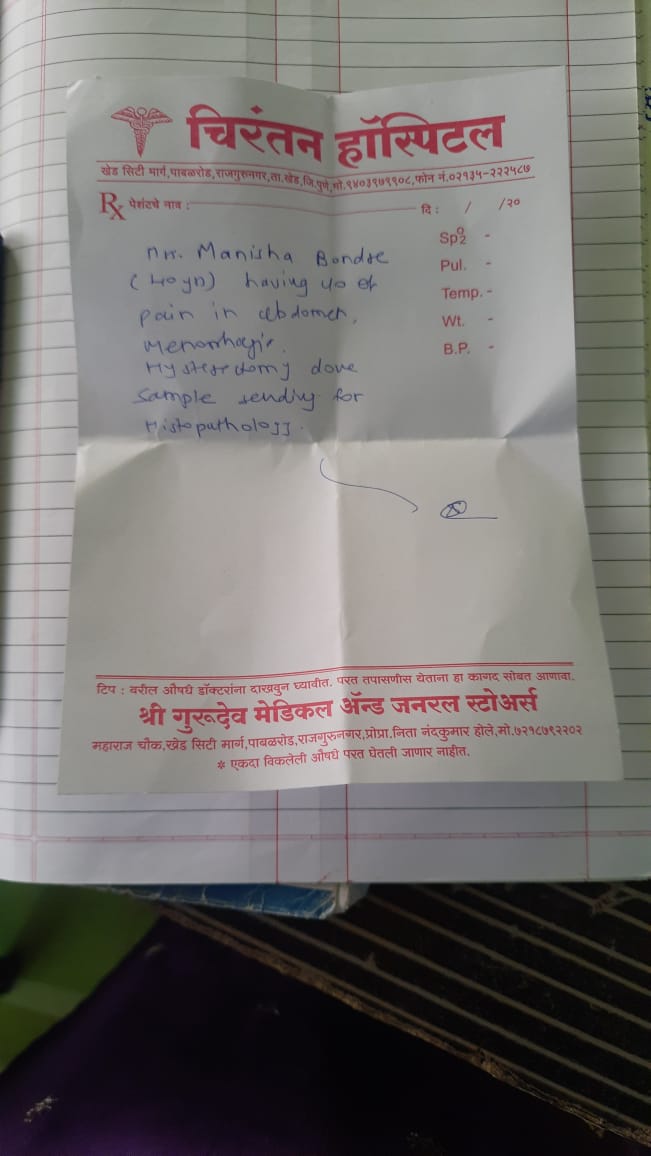 चिरंतन हॉस्पिटल
खेड सिटी मार्ग,पाबळरोड,राजगुरुनगर,ता.खेड,जि.पुणे,मो.९४०३९७९९०८,फोन नं.०२१३५-२२२५८७
Rx पेशंटचे नाव :
दि : / /२०
Spo2 -
Pul. -
Temp. -
Wt. -
B.P. -
Mrs. Manisha Bondre
(40 yr) having c/o of
pain in abdomen,
Menorrhagia.
Hysterectomy done
Sample sending for
Histopathology.
टिप : वरील औषधे डॉक्टरांना दाखवुन घ्यावीत. परत तपासणीस येताना हा कागद सोबत आणावा.
श्री गुरूदेव मेडिकल ॲन्ड जनरल स्टोअर्स
महाराज चौक,खेड सिटी मार्ग,पाबळरोड,राजगुरुनगर,प्रोप्रा.निता नंदकुमार होले,मो.७२१८७९२२०२
* एकदा विकलेली औषधे परत घेतली जाणार नाहीत.